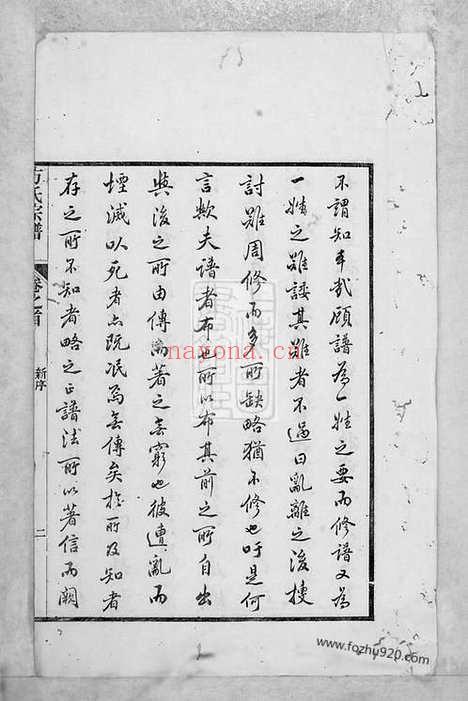 不謂知本哉顧譜為一姓之要而修譜又為
一姓之難諉其難者不過曰亂離之後搜
討雖周修而多所缺略猶不修也吁是何
言歟夫譜者布也所以布其前之所自出
與後之所由傳而著之無窮也彼遭亂而
煙滅以死者亦既泯焉無傳矣於所及知者
存之所不知者略之正譜法所以著信而闕
方氏宗譜
卷之首
新序
二
naxona.cn
www.fozhu920.com